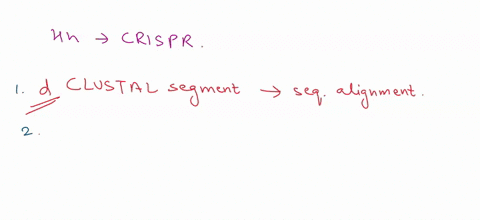 Hh → CRISPR.
1. d CLUSTAL segment → seq. alignment.
2.